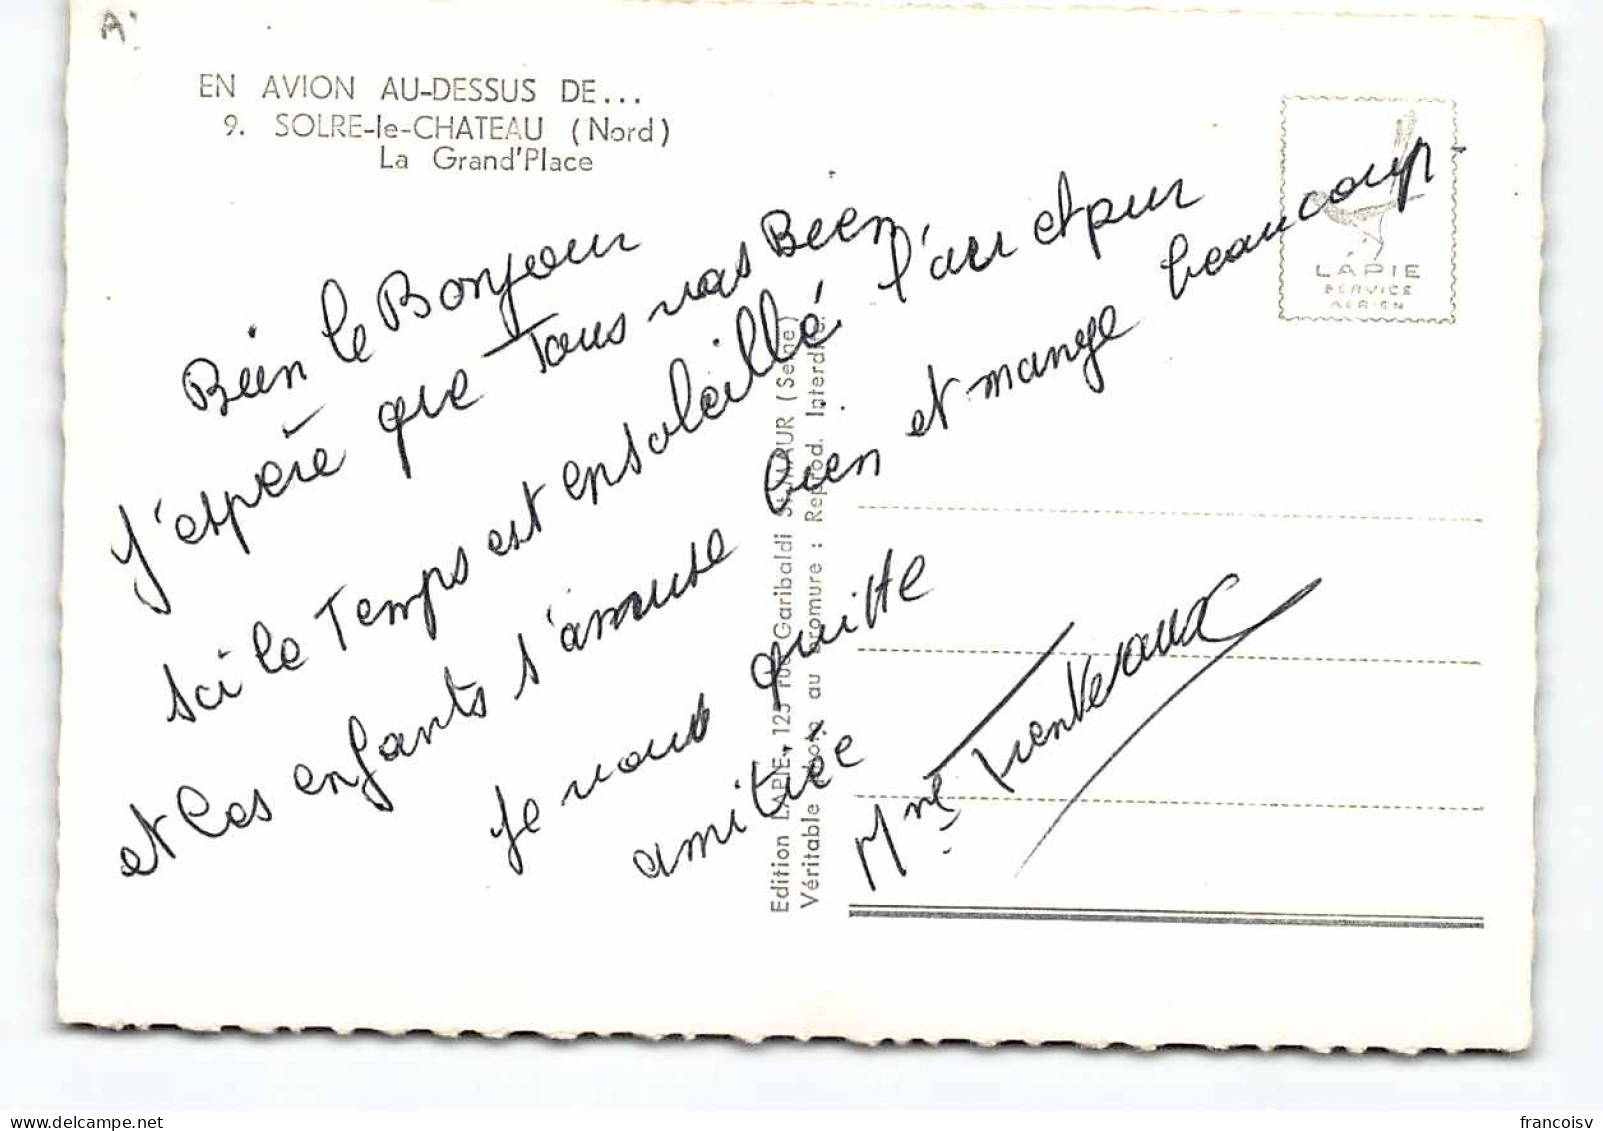 A.
EN AVION AU-DESSUS DE...
9. SOLRE-le-CHATEAU (Nord)
La Grand'Place
LAPIE
SERVICE
AERIEN
Bien le Bonjour
J'espère que Tous vas Bien
ici le Temps est ensoleillé l'air et pur
et les enfants s'amuse bien et mange beaucoup
je vous quitte
amitiée
Mme
Edition LAPIE, 125 rue Garibaldi St-MAUR (Seine)
Véritable photo au bromure : Reprod. Interdite.
delcampe.net
francoisv